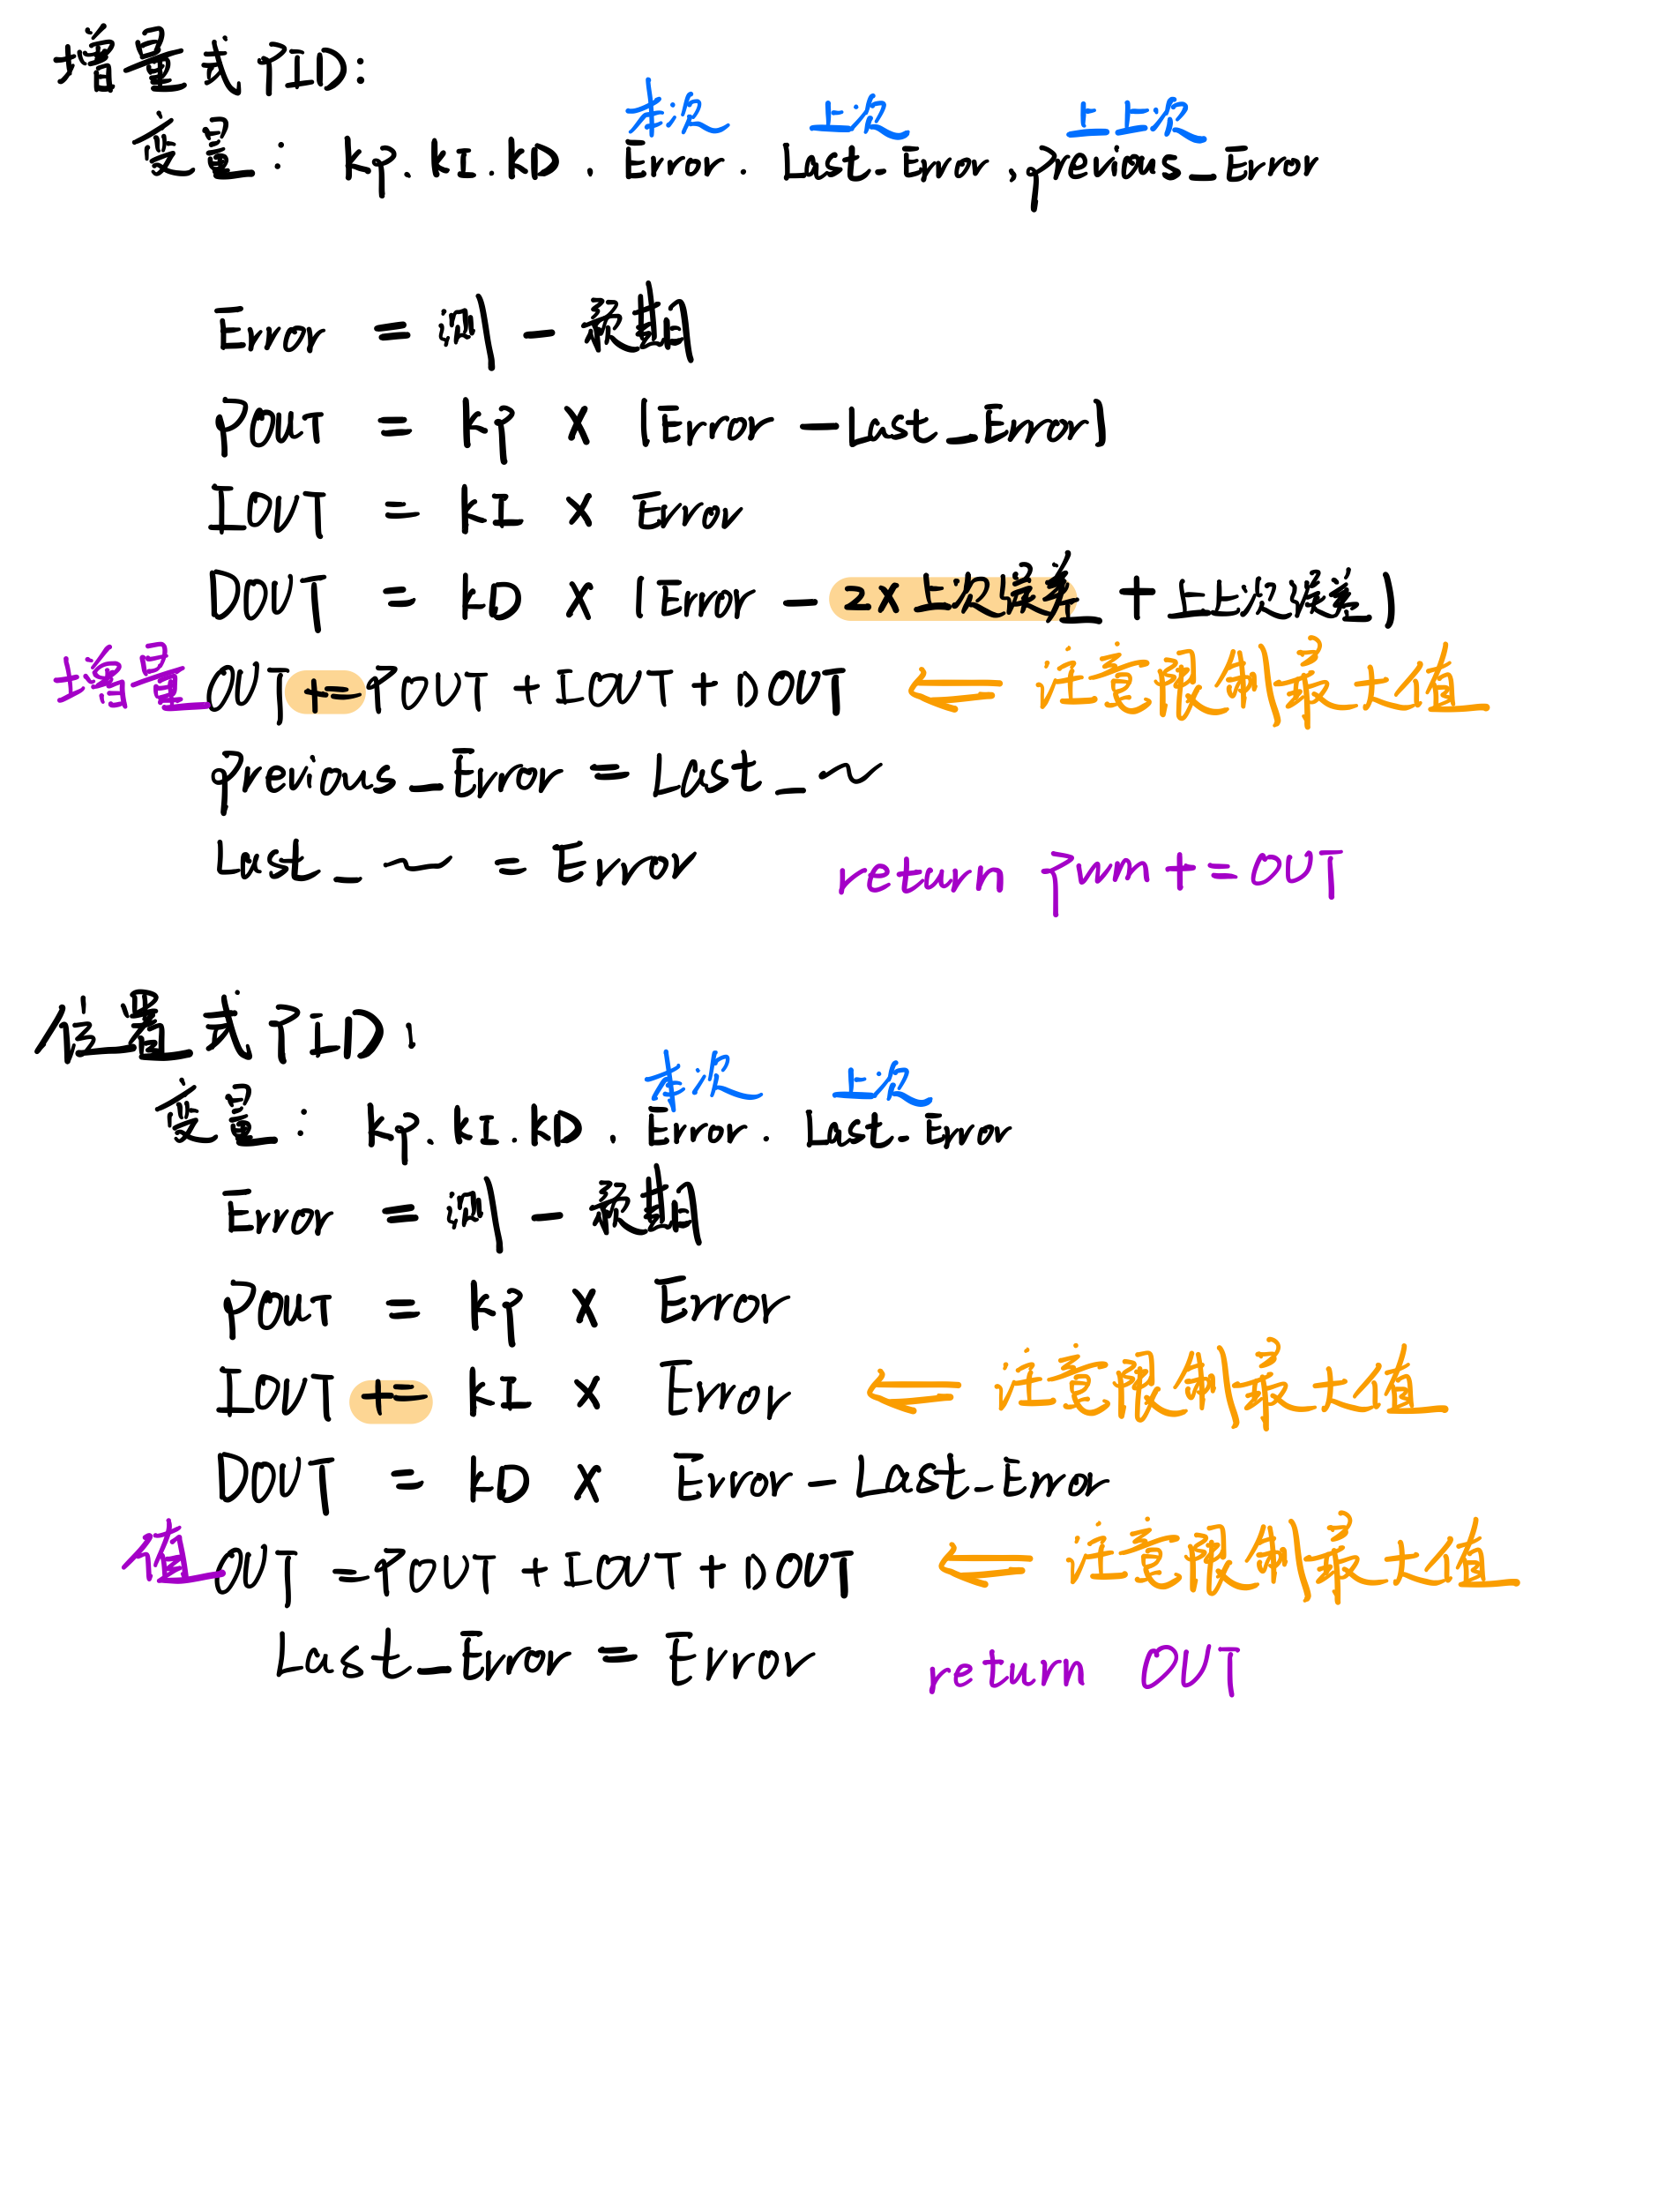 增量式PID:
本次 上次 上上次
变量: kp. kI. kD. Error. Last_Error, previous_Error
Error = 测 - 预期
POUT = kp × (Error - Last_Error)
IOUT = kI × Error
DOUT = kD × (Error - 2×上次误差 + 上上次误差)
增量 OUT += POUT + IOUT + DOUT ⇐ 注意限制最大值
previous_Error = Last_~
Last_~ = Error return pwm += OUT
位置式PID:
本次 上次
变量: kp. kI. kD. Error. Last_Error
Error = 测 - 预期
POUT = kp × Error
IOUT += kI × Error ⇐ 注意限制最大值
DOUT = kD × Error - Last_Error
值 OUT = POUT + IOUT + DOUT ⇐ 注意限制最大值
Last_Error = Error return OUT